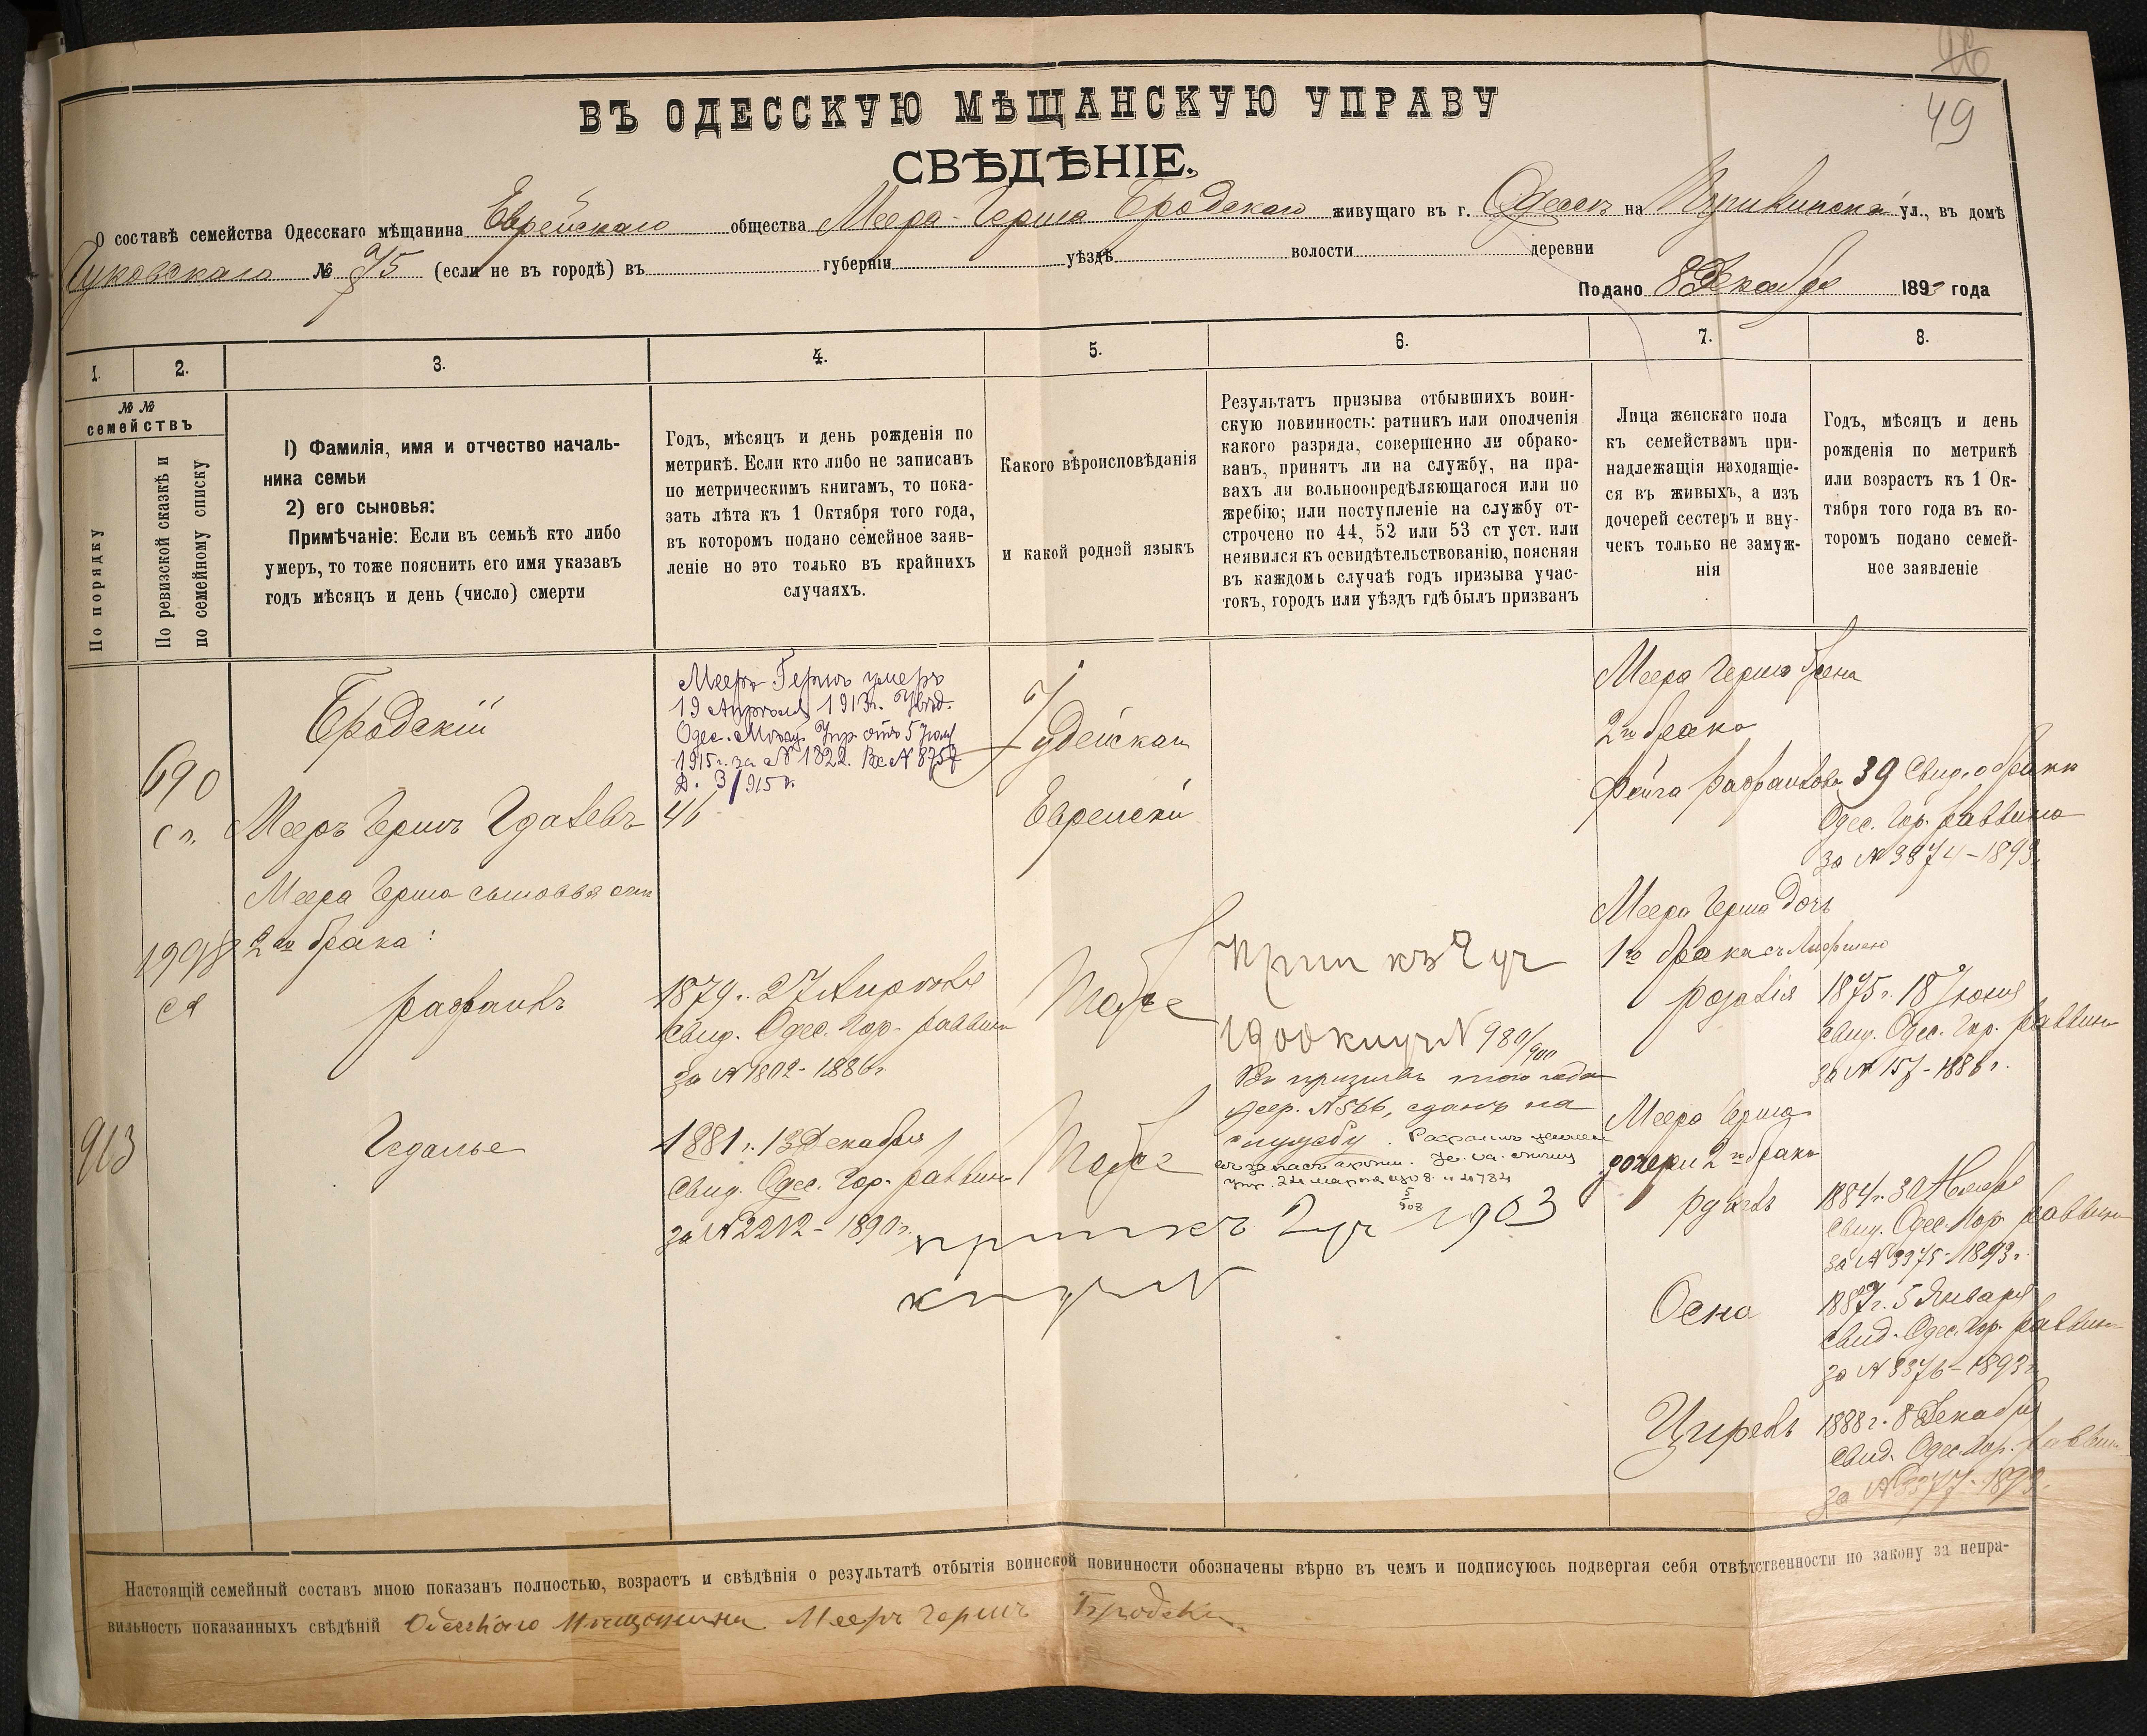 49
ВЪ ОДЕССКУЮ МѢЩАНСКУЮ УПРАВУ
СВѢДѢНІЕ.
О составѣ семейства Одесскаго мѣщанина Еврейскаго общества Меера-Герша Бродскаго живущаго въ г. Одессѣ на Пушкинской ул., въ домѣ
№ 75 (если не въ городѣ) въ губерніи уѣздѣ волости деревни
Подано 8 Декабря 1893 года
1. 2. 3. 4. 5. 6. 7. 8.
№ №
семействъ
По порядку
По ревизской сказкѣ и
по семейному списку
1) Фамилія, имя и отчество началь-
ника семьи
2) его сыновья:
Примѣчаніе: Если въ семьѣ кто либо
умеръ, то тоже пояснить его имя указавъ
годъ мѣсяцъ и день (число) смерти
Годъ, мѣсяцъ и день рожденія по
метрикѣ. Если кто либо не записанъ
по метрическимъ книгамъ, то пока-
зать лѣта къ 1 Октября того года,
въ которомъ подано семейное заяв-
леніе но это только въ крайнихъ
случаяхъ.
Какого вѣроисповѣданія
и какой родной языкъ
Результатъ призыва отбывшихъ воин-
скую повинность: ратникъ или ополченія
какого разряда, совершенно ли обрако-
ванъ, принятъ ли на службу, на пра-
вахъ ли вольноопредѣляющагося или по
жребію; или поступленіе на службу от-
строчено по 44, 52 или 53 ст уст. или
неявился къ освидѣтельствованію, поясняя
въ каждомъ случаѣ годъ призыва учас-
токъ, городъ или уѣздъ гдѣ былъ призванъ
Лица женскаго пола
къ семействамъ при-
надлежащія находящіе-
ся въ живыхъ, а изъ
дочерей сестеръ и вну-
чекъ только не замуж-
нія
Годъ, мѣсяцъ и день
рожденія по метрикѣ
или возрастъ къ 1 Ок-
тября того года въ ко-
торомъ подано семей-
ное заявленіе
690
Бродскій
Мееръ Гершъ Гдалевъ
46
Мееръ Гершъ умеръ
19 Апрѣля 1913г. Увѣд.
Одес. Мѣщ. Упр. отъ 5
1915 г. за № 1822. Вх № 8757
Д. 3/915 г.
Іудейская
Еврейскій
Меера Герша жена
2го брака
Фейга Рафаиловна 39 Свид. о бракѣ
Одес. Гор. Раввина
за № 3374-1893г.
Меера Герша сыновья отъ
2го брака:
Рафаилъ
1879г. 27 Апрѣля
Свид. Одес. Гор. Раввина
за № 1802-1886г
Тоже
№ 980/900
Въ призывъ того года
жер. № 566, сданъ на
службу.
Меера Герша дочь
1го брака съ
Розалія 1875г. 18 Іюня
Свид. Одес. Гор. Раввина
за № 157-1886г.
913
Гедалье
1881г. 13 Декабря
Свид. Одес. Гор. Раввина
за № 2202-1890г.
Тоже
1903
Меера Герша
дочери 2го брака
1884г. 30 Ноября
Свид. Одес. Гор. Раввина
за № 3375-1893г.
Осна 1887г. 5 Января
Свид. Одес. Гор. Раввина
за № 3376-1893г
Цирель 1888г. 8 Декабря
Свид. Одес. Гор. Раввина
за № 3377-1893.
Настоящій семейный составъ мною показанъ полностью, возрастъ и свѣдѣнія о результатѣ отбытія воинской повинности обозначены вѣрно въ чемъ и подписуюсь подвергая себя отвѣтственности по закону за непра-
вильность показанныхъ свѣдѣній Мееръ Гершъ Бродскій